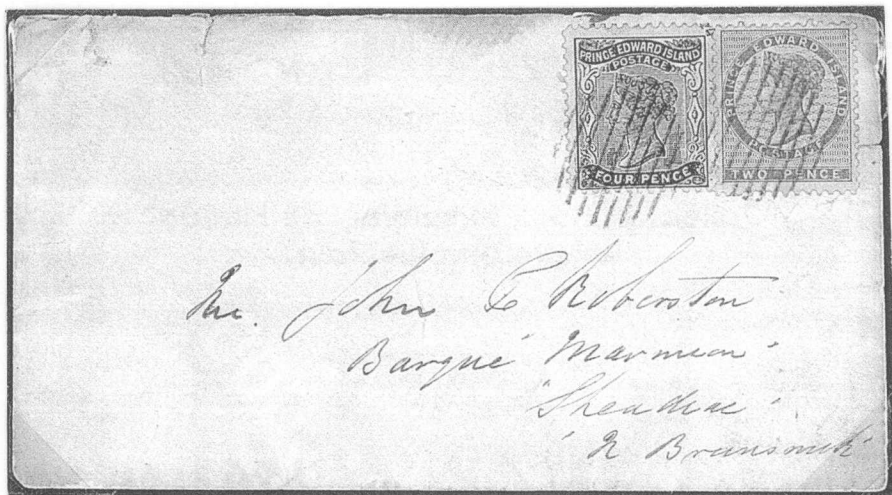 PRINCE EDWARD ISLAND
POSTAGE
FOUR PENCE
PRINCE EDWARD ISLAND
POSTAGE
TWO PENCE
Mr. John C Roberston
Barque "Marmion"
"Sheadiac"
N Brunswick